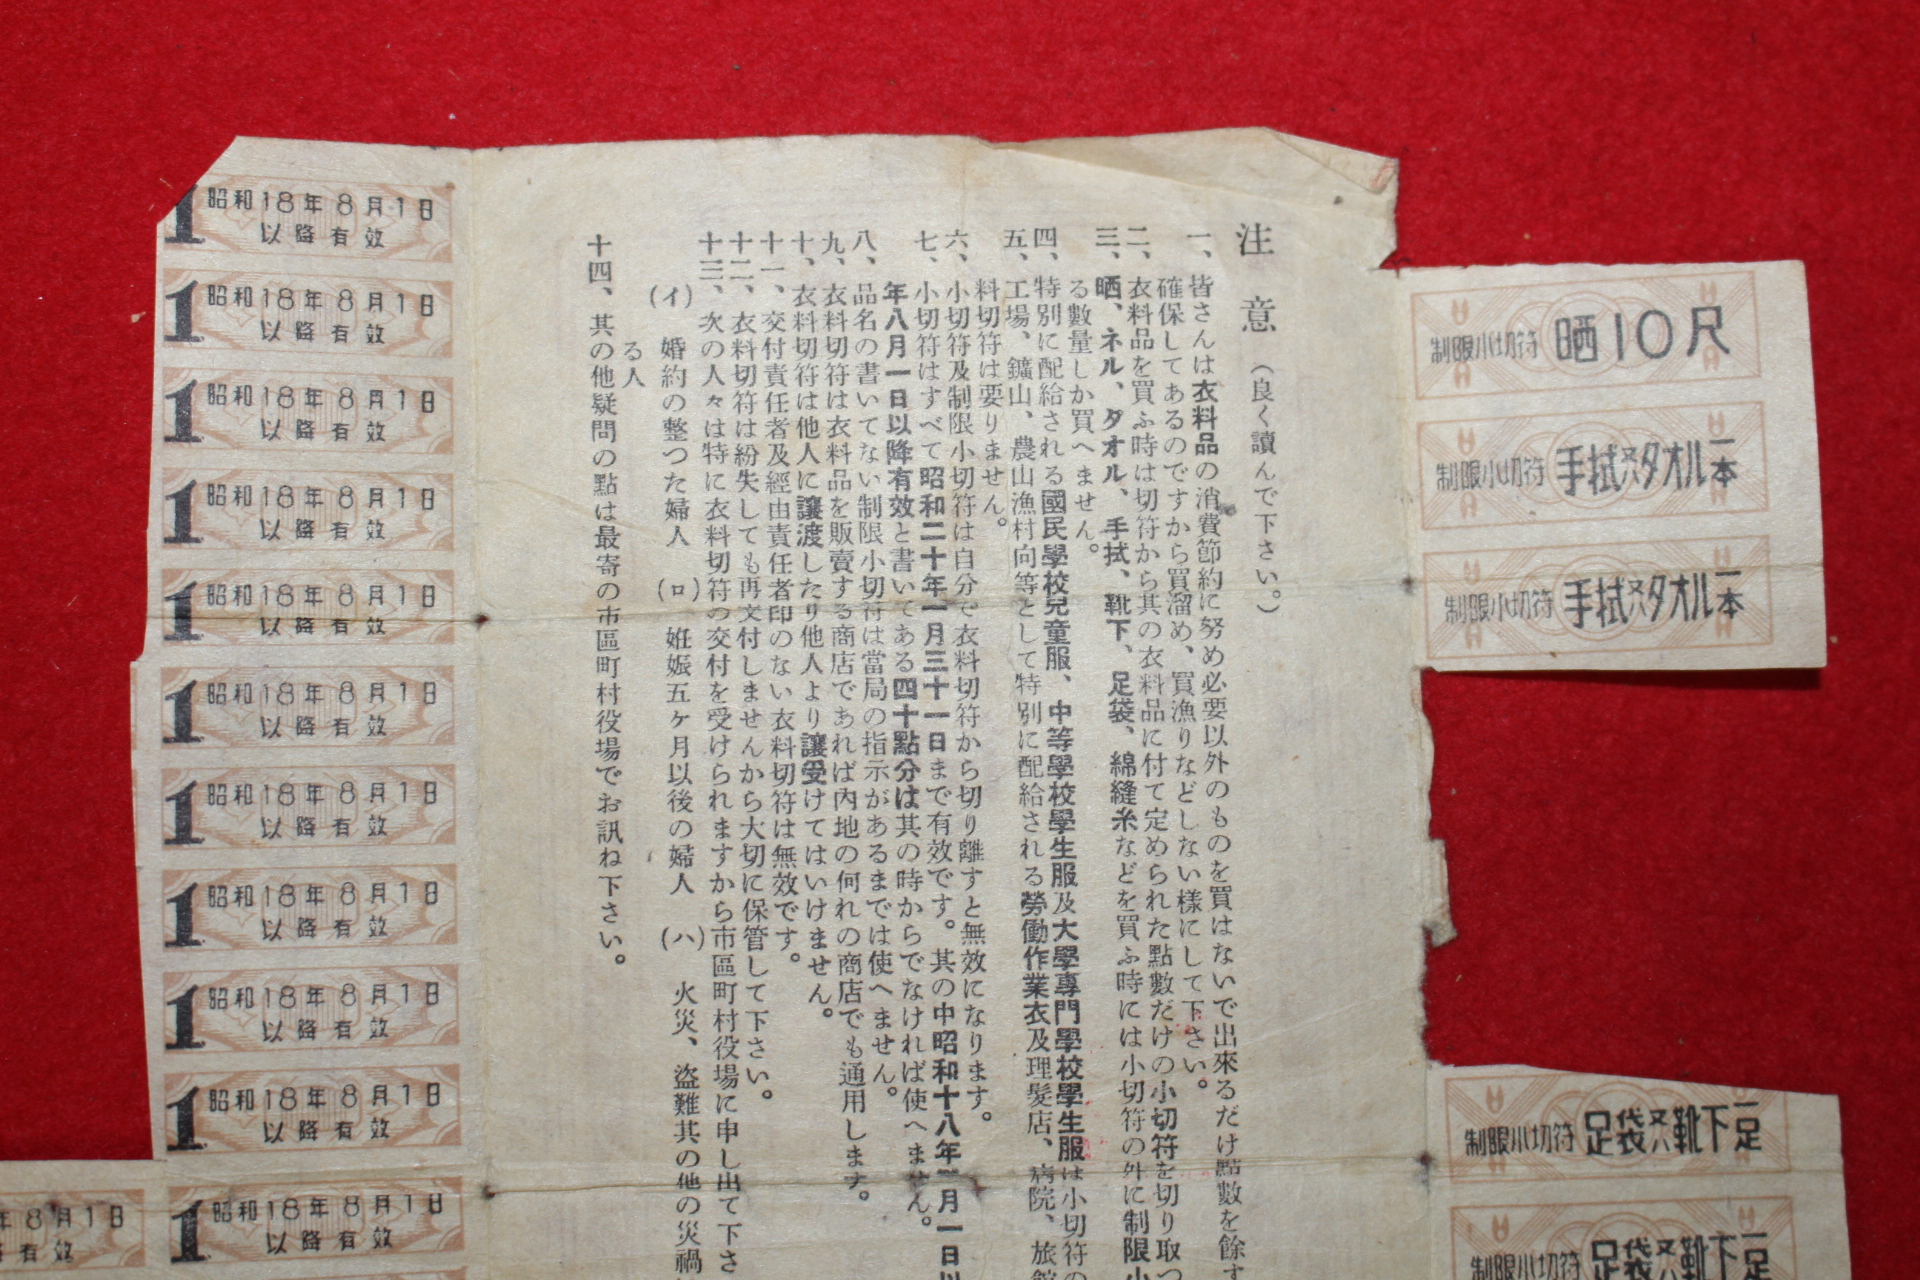 注意(良く讀んで下さい。)
一、皆さんは衣料品の消費節約に努め必要以外のものを買はないで出來るだけ點數を餘す
確保してあるのですから買溜め、買漁りなどしない樣にして下さい。
二、衣料品を買ふ時は切符から其の衣料品に付て定められた點數だけの小切符を切り取つ
三、晒、ネル、タオル、手拭、靴下、足袋、綿縫糸などを買ふ時には小切符の外に制限小
る數量しか買へません。
四、特別に配給される國民學校兒童服、中等學校學生服及大學專門學校學生服は小切符の
五、工場、鑛山、農山漁村向等として特別に配給される勞働作業衣及理髮店、病院、旅館
料切符は要りません。
六、小切符及制限小切符は自分で衣料切符から切り離すと無效になります。
七、小切符はすべて昭和二十年一月三十一日まで有效です。其の中昭和十八年 月一日以
年八月一日以降有效と書いてある四十點分は其の時からでなければ使へません。
八、品名の書いてない制限小切符は當局の指示があるまでは使へません。
九、衣料切符は衣料品を販賣する商店であれば內地の何れの商店でも通用します。
十、衣料切符は他人に讓渡したり他人より讓受けてはいけません。
十一、交付責任者及經由責任者印のない衣料切符は無效です。
十二、衣料切符は紛失しても再交付しませんから大切に保管して下さい。
十三、次の人々は特に衣料切符の交付を受けられますから市區町村役場に申し出て下さ
(イ) 婚約の整つた婦人 (ロ) 姙娠五ケ月以後の婦人 (ハ) 火災、盜難其の他の災禍
る人
十四、其の他疑問の點は最寄の市區町村役場でお訊ね下さい。
制限小切符 晒10尺
制限小切符 手拭又ハタオル一本
制限小切符 手拭又ハタオル一本
制限小切符 足袋又ハ靴下一足
制限小切符 足袋又ハ靴下一足
1 昭和18年8月1日
以降有效
1 昭和18年8月1日
以降有效
1 昭和18年8月1日
以降有效
1 昭和18年8月1日
以降有效
1 昭和18年8月1日
以降有效
1 昭和18年8月1日
以降有效
1 昭和18年8月1日
以降有效
1 昭和18年8月1日
以降有效
1 昭和18年8月1日
以降有效
1 昭和18年8月1日
以降有效
1 昭和18年8月1日
以降有效
年8月1日
有效